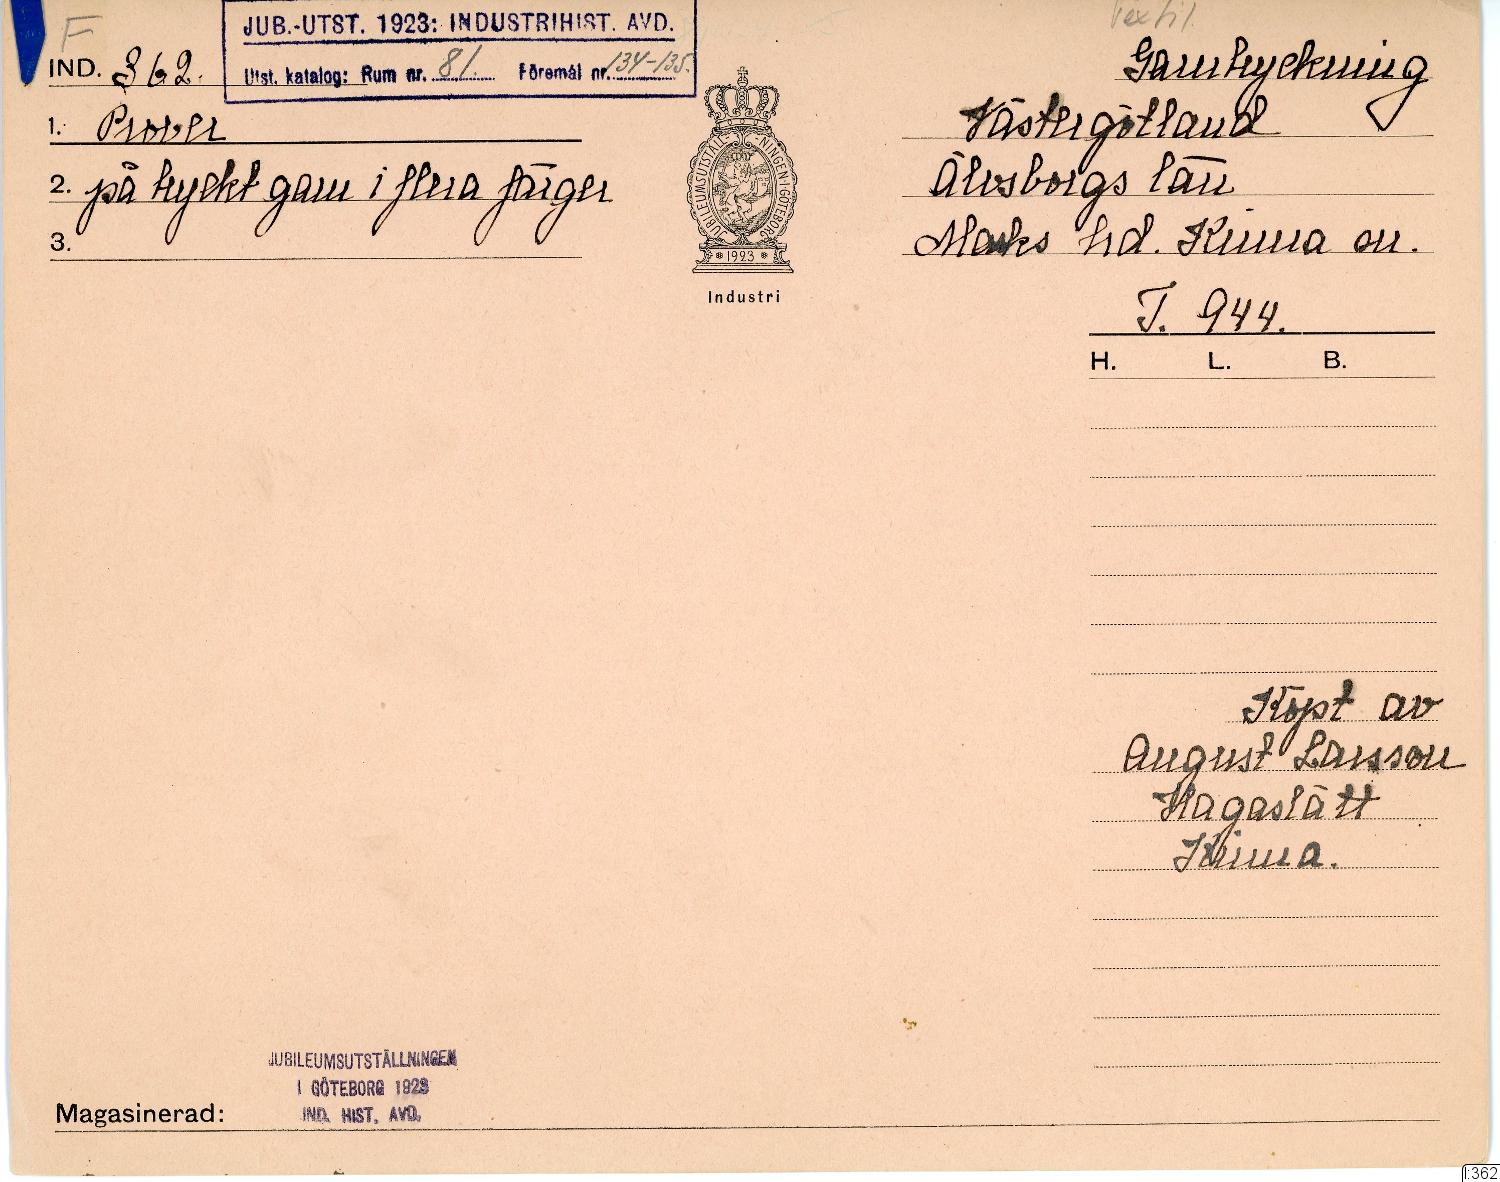 F
JUB.-UTST. 1923: INDUSTRIHIST. AVD.
Utst. katalog: Rum nr. 81. Föremål nr. 134-135.
Textil.
IND. 362.
Garntryckning
1. Prover
Västergötland
2. på tryckt garn i flera färger
Älvsborgs län
3.
Marks hd. Kinna sn.
JUBILEUMSUTSTÄLLNINGEN I GÖTEBORG
1923
Industri
T. 944.
H. L. B.
Köpt av
August Larsson
Hagaslätt
Kinna.
JUBILEUMSUTSTÄLLNINGEN
I GÖTEBORG 1923
IND. HIST. AVD.
Magasinerad:
I:362